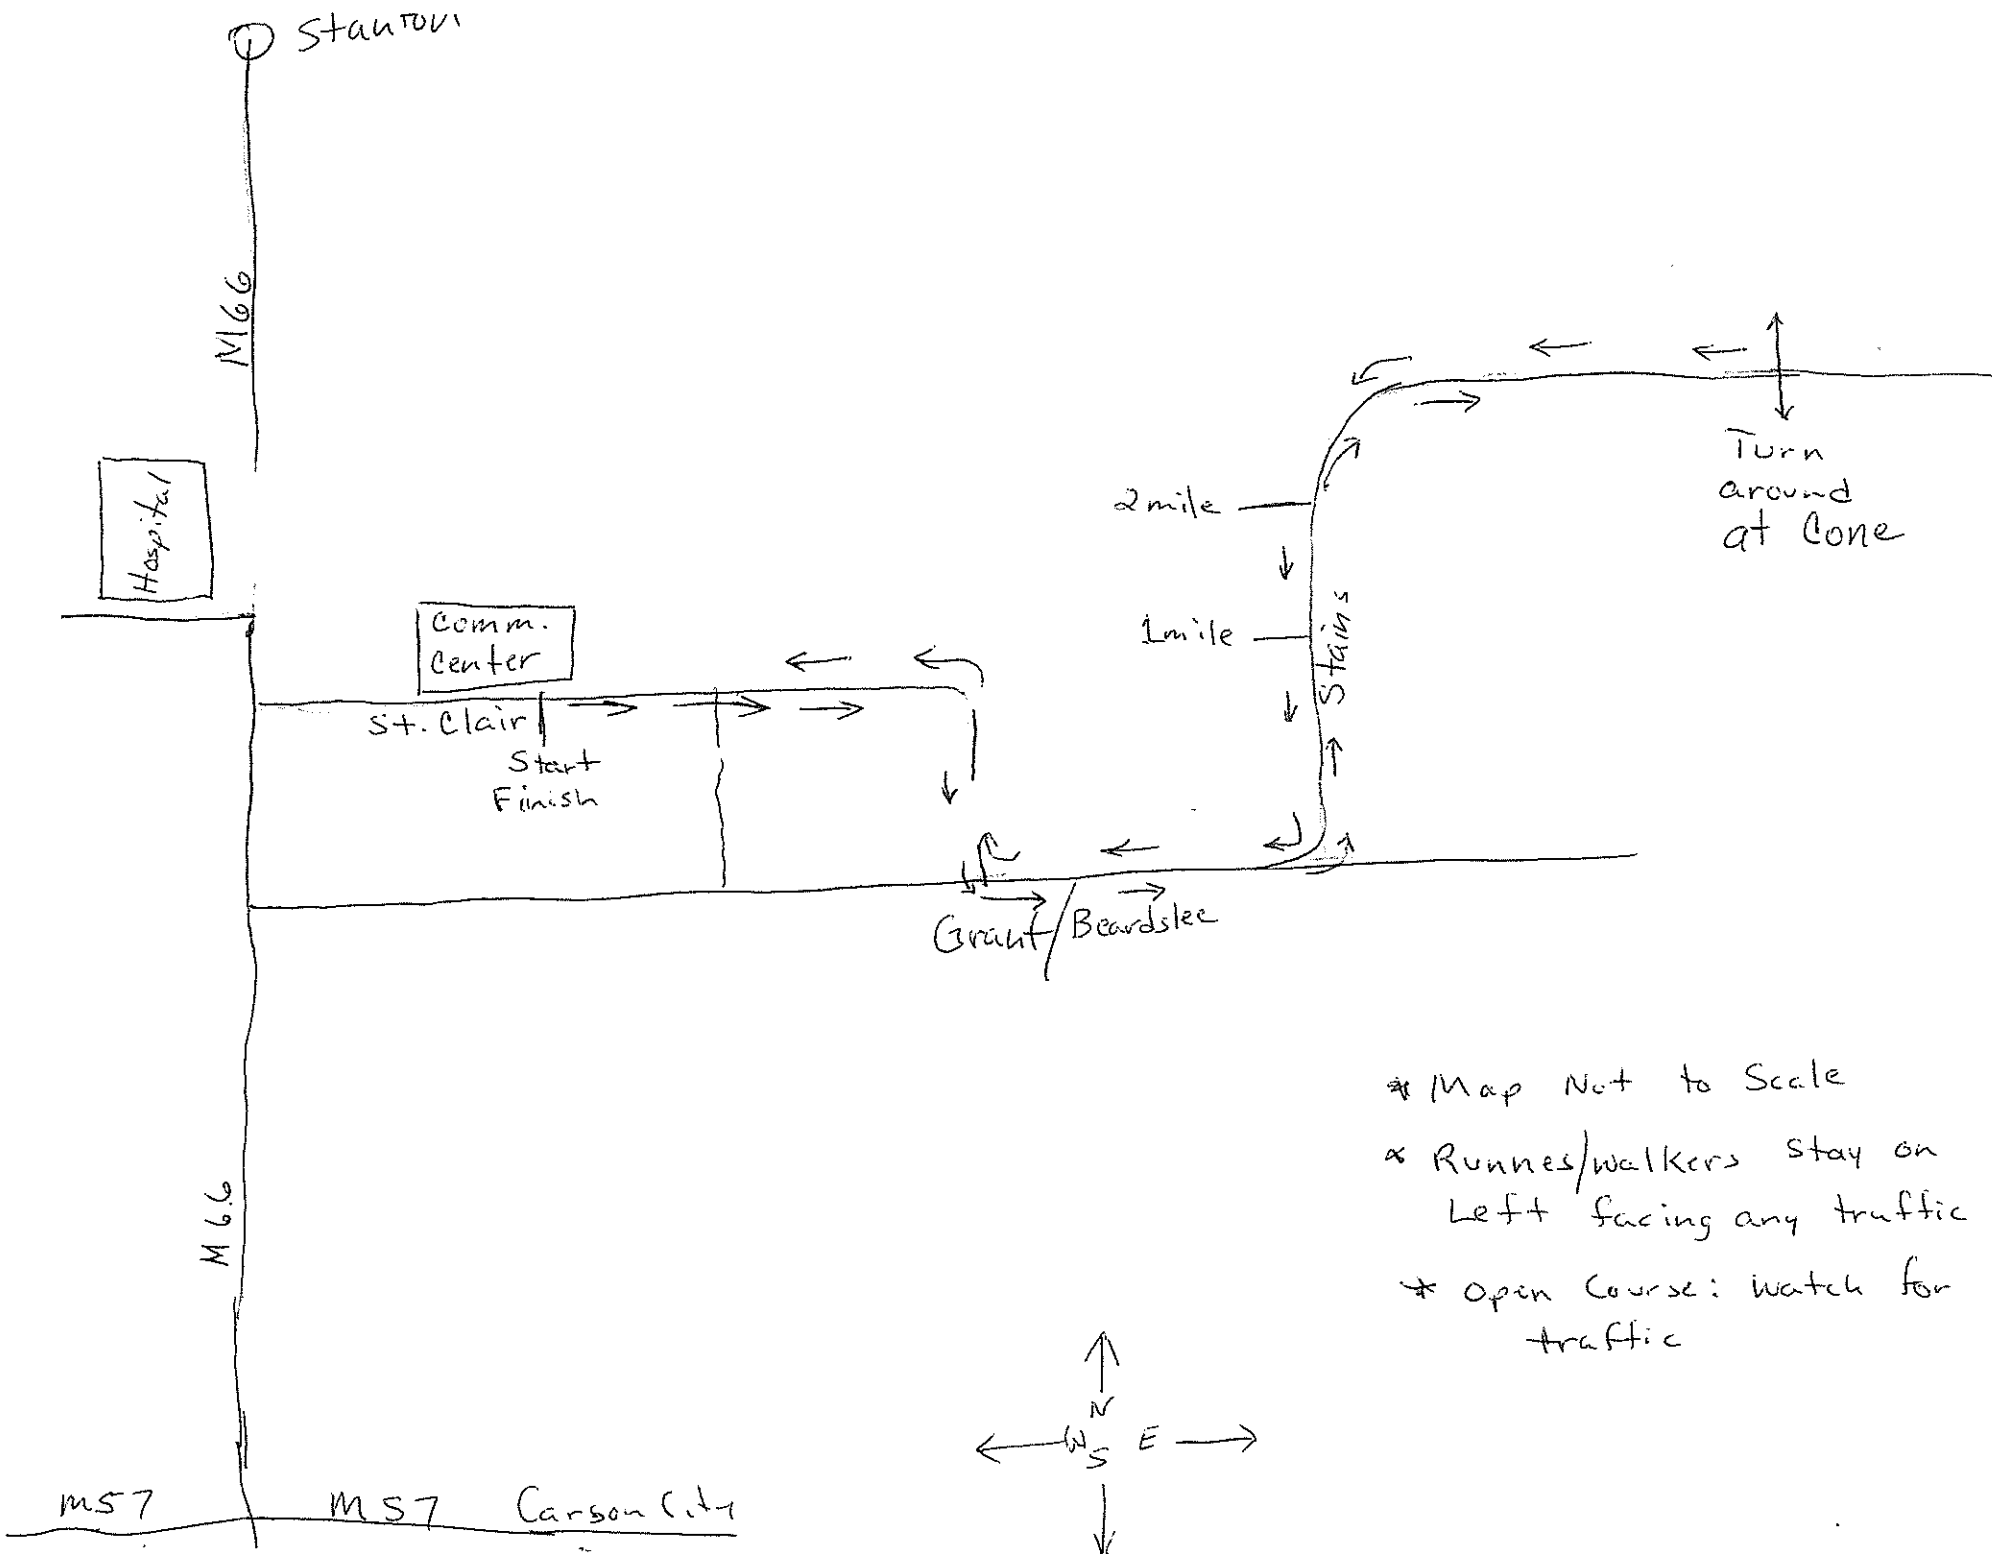 Stanton
M66
Hospital
Comm.
Center
St. Clair
Start
Finish
2mile
1mile
Stains
Turn
around
at Cone
Grant/Beardslee
* Map Not to Scale
* Runnes/walkers stay on
Left facing any traffic
* Open Course: watch for
traffic
M66
N
W
S
E
M57
M57
Carson City